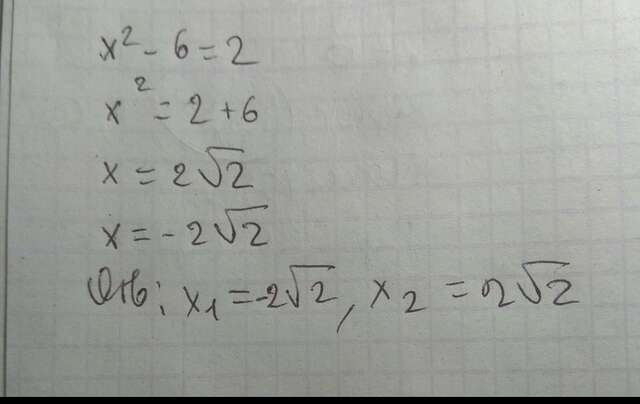 x² - 6 = 2
x² = 2 + 6
x = 2√2
x = -2√2
Отв: x₁ = -2√2, x₂ = 2√2